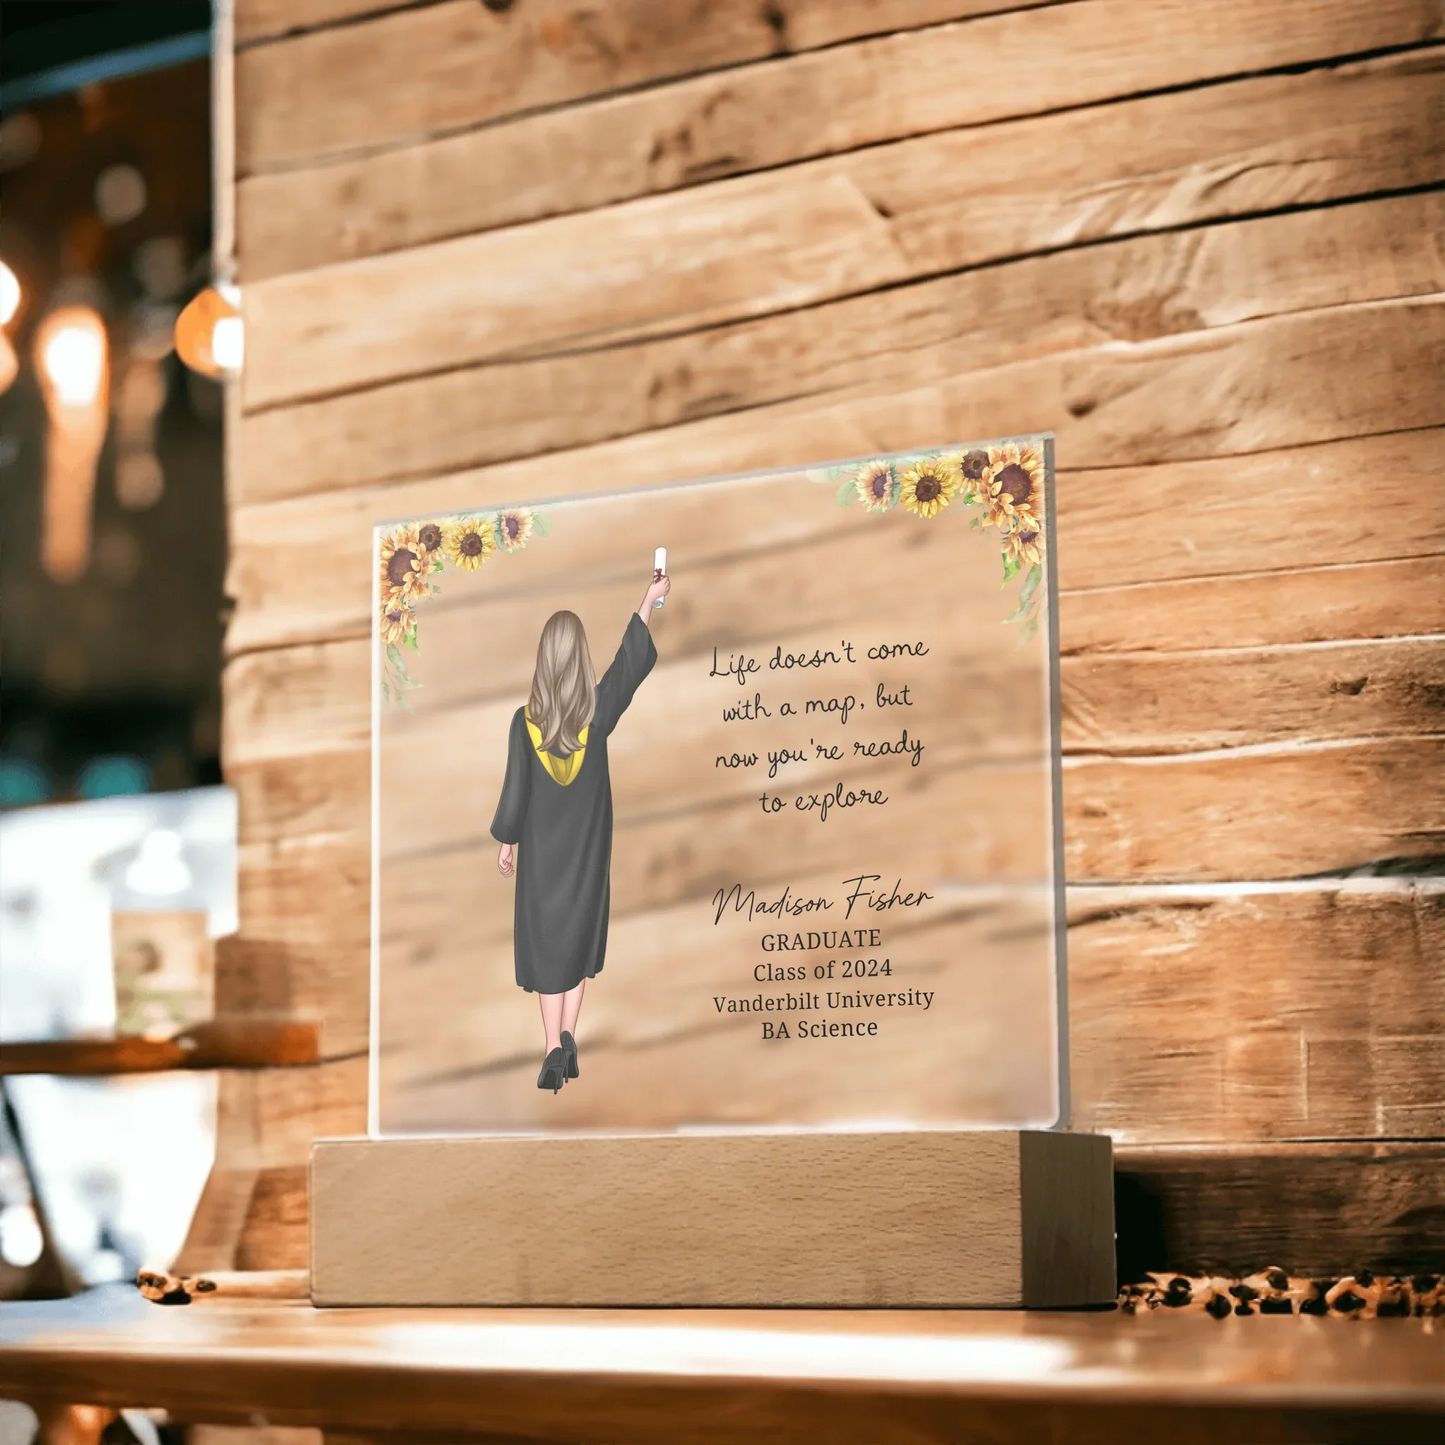 Life doesn't come
with a map, but
now you're ready
to explore
Madison Fisher
GRADUATE
Class of 2024
Vanderbilt University
BA Science